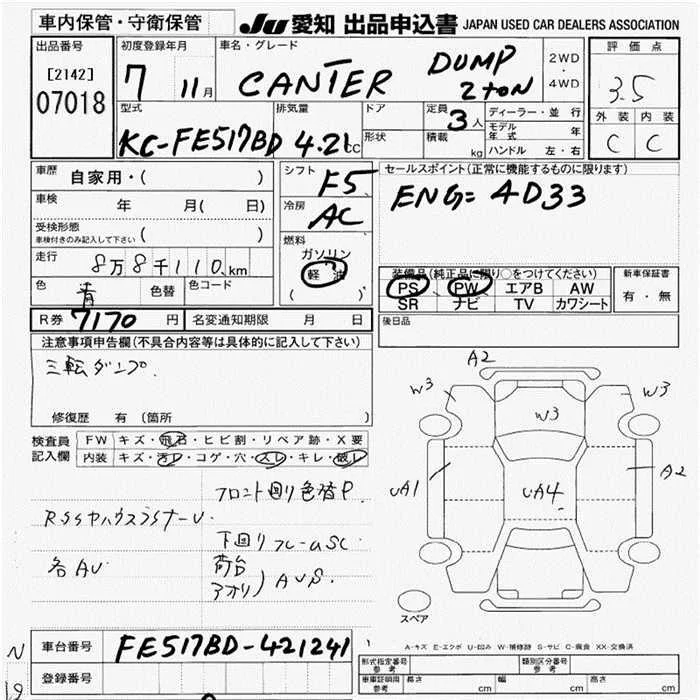 車内保管・守衛保管
JU 愛知 出品申込書 JAPAN USED CAR DEALERS ASSOCIATION
出品番号
[2142]
07018
初度登録年月
7 11月
車名・グレード
CANTER DUMP 2ton
2WD
・
4WD
評価点
3.5
外装 内装
C C
型式
KC-FE517BD
排気量
4.2l cc
ドア
形状
定員
3人
積載
kg
ディーラー・並行
モデル年式 年
ハンドル 左・右
車歴
自家用・( )
車検
年 月( 日)
受検形態
車検付きのみ記入して下さい ( )
走行
8万8千110km
色
青 色替
色コード
シフト
F5
冷房
AC
燃料
ガソリン
軽油
( )
セールスポイント(正常に機能するものに限ります)
ENG= 4D33
装備品(純正品に限り○をつけてください)
PS PW エアB AW
SR ナビ TV カワシート
新車保証書
有・無
後日品
R券 7170円
名変通知期限 月 日
注意事項申告欄(不具合内容等は具体的に記入して下さい)
三転ダンプ.
修復歴 有 (箇所 )
検査員
記入欄
FW キズ・飛石・ヒビ割・リペア跡・X要
内装 キズ・汚レ・コゲ・穴・スレ・キレ・破レ
フロント回り色替P
各AU
下回りフレームSC
荷台
アオリ) AUS.
A2
W3
W3
W3
UA1
UA4
A2
スペア
A-キズ E-エクボ U-凹み W-補修跡 S-サビ C-腐食 XX-交換済
車台番号
FE517BD-421241
登録番号
形式指定番号
参考
類別区分番号
参考
車庫証明用
参考
長さ cm
幅 cm
高さ cm
N